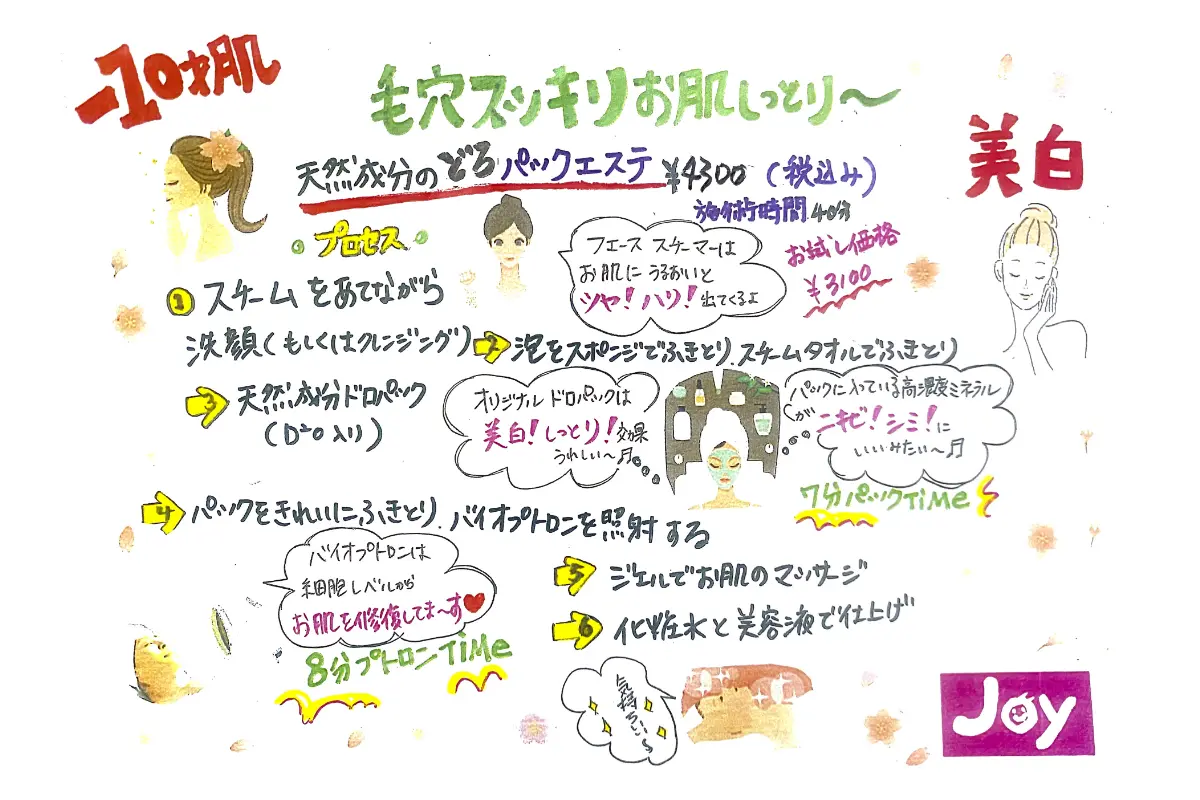 -10才肌
毛穴スッキリお肌しっとり〜
美白
天然成分のどろパックエステ ¥4300(税込み)
施術時間40分
お試し価格
¥3100
プロセス
フェース スチーマーは
お肌に うるおいと
ツヤ!ハリ!出てくるよ
1 スチームをあてながら
洗顔(もしくはクレンジング)
2 泡をスポンジでふきとり、スチームタオルでふきとり
3 天然成分ドロパック
オリジナル ドロパックは
美白!しっとり!効果
うれしい〜♫
パックに入っている高濃度ミネラル
が ニキビ!シミ!に
いいみたい〜♫
7分パックTiMe
4 パックをきれいにふきとり、バイオプトロンを照射する
バイオプトロンは
細胞レベルから
お肌を修復してま〜す♥
8分プトロンTiMe
5 ジェルでお肌のマッサージ
6 化粧水と美容液で仕上げ
気持ちいい〜
Joy